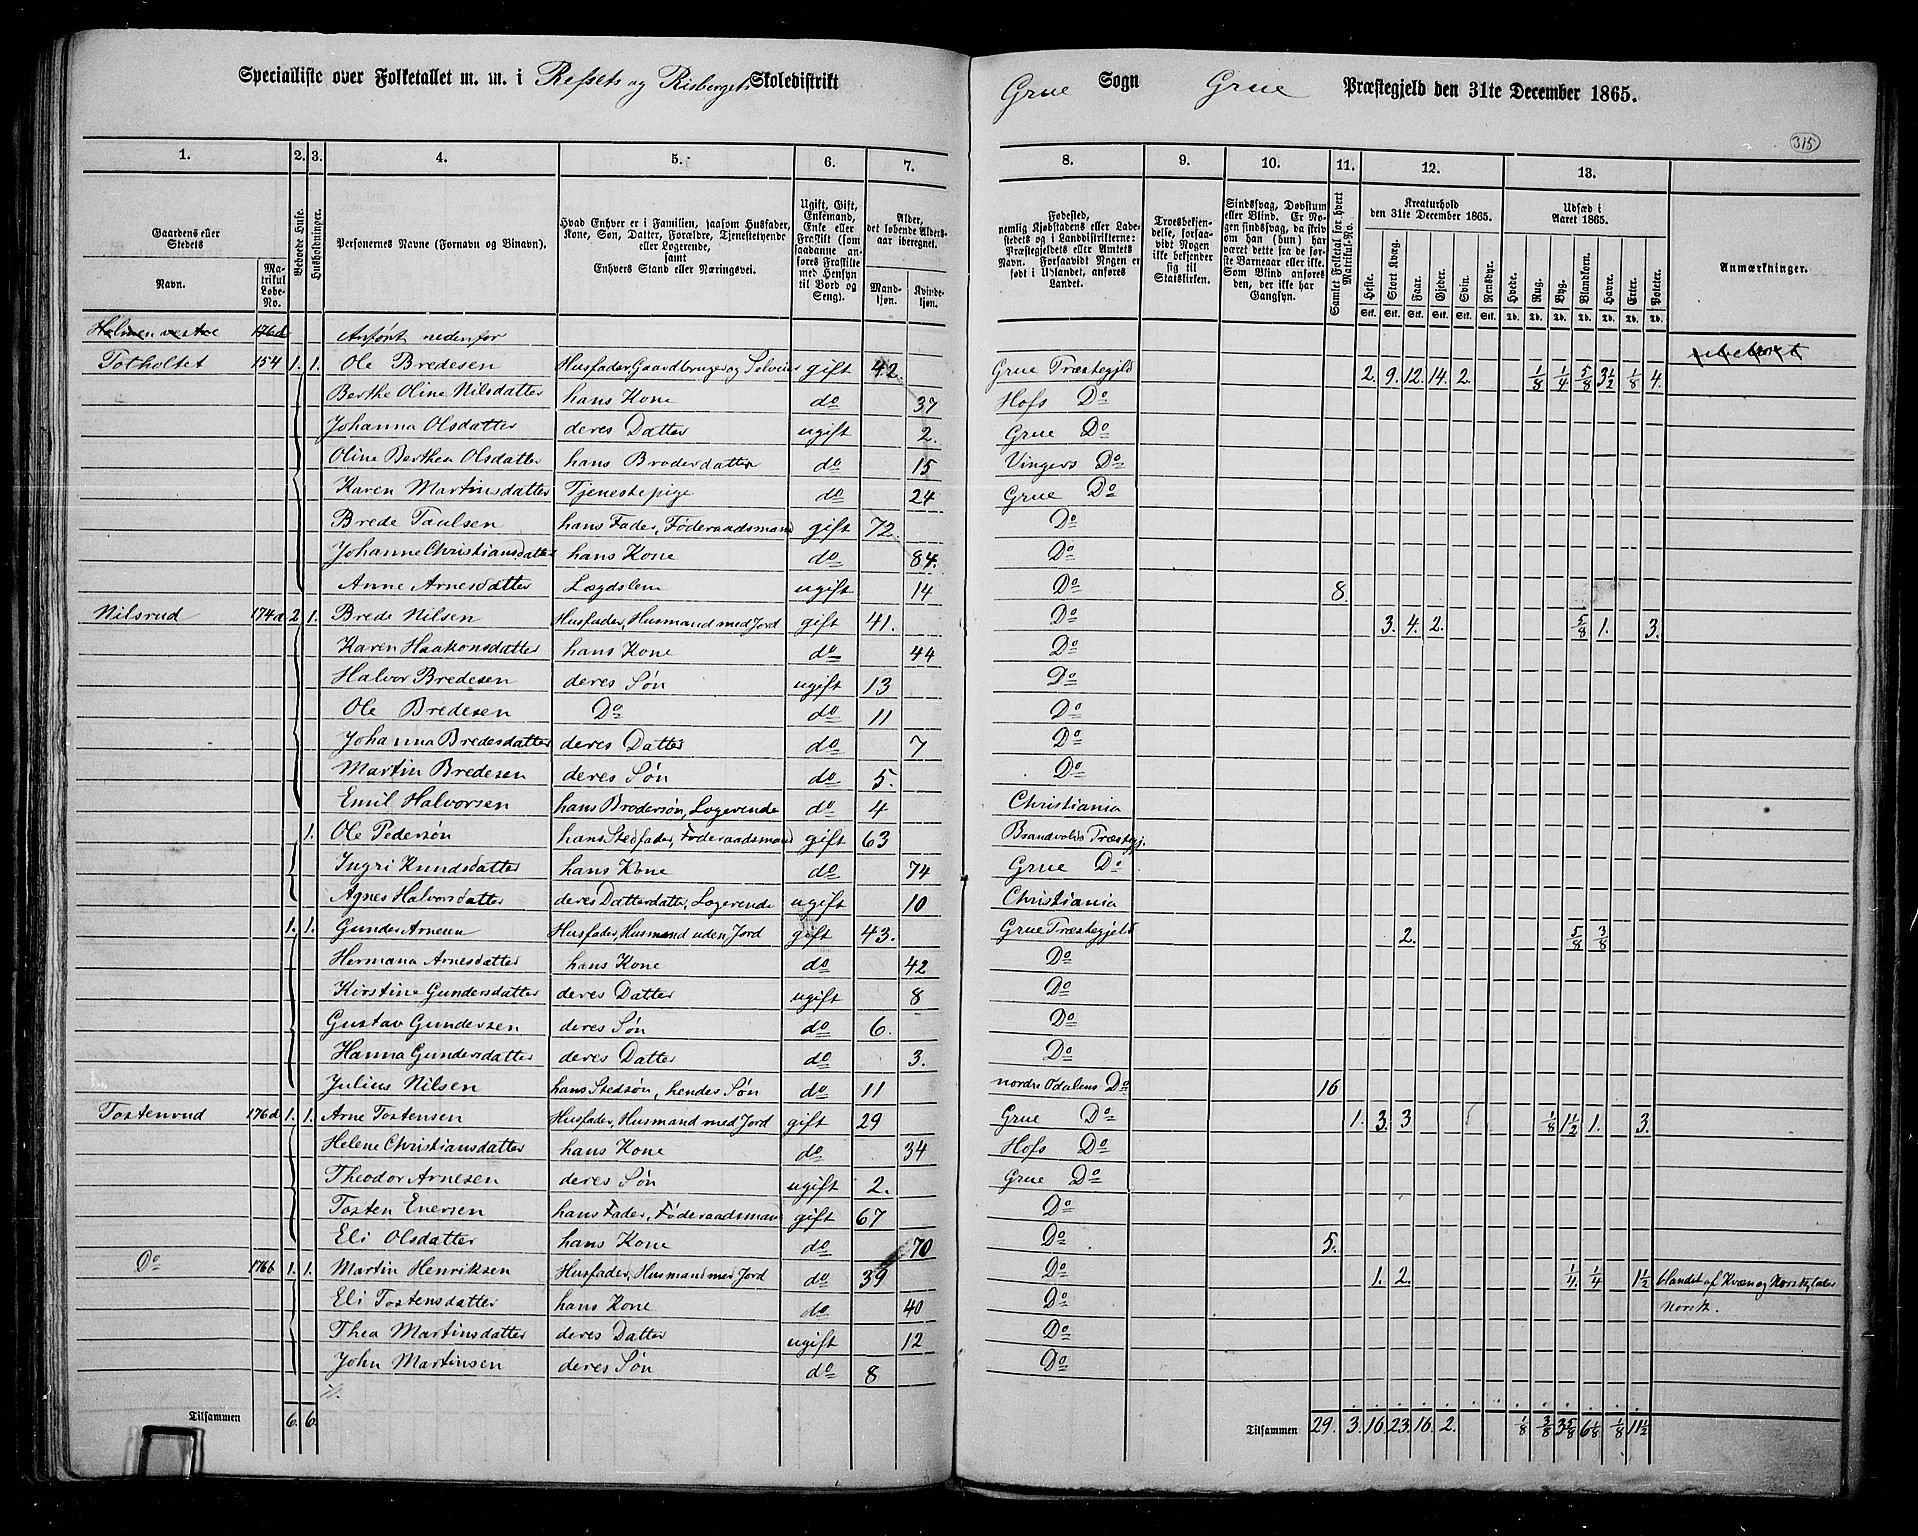 Specialliste over Folketallet m. m. i Refsets og Risbergets Skoledistrikt Grue Sogn Grue Præstegjeld den 31te December 1865.
315
1. 2. 3. 4. 5. 6. 7. 8. 9. 10. 11. 12. 13.
Gaardens eller Stedets Navn. Matrikul Løbe-No. Beboede Huse. Husholdninger. Personernes Navne (Fornavn og Binavn). Hvad Enhver er i Familien, saasom Husfader, Kone, Søn, Datter, Forældre, Tjenestetyende eller Logerende, samt Enhvers Stand eller Næringsvei. Ugift, Gift, Enkemand, Enke eller Fraskilt (som saadanne anføres Fraskilte med Hensyn til Bord og Seng). Alder, det løbende Alders-aar iberegnet. Mandkjøn. Kvindekjøn.
Fødested, nemlig Kjøbstadens eller Ladestedets og i Landdistrikterne: Præstegjeldets eller Amtets Navn. Forsaavidt Nogen er født i Udlandet, anføres Landet. Troesbekjendelse, forsaavidt Nogen ikke bekjender sig til Statskirken. Sindssvag, Døvstum eller Blind. Er Nogen sindssvag, da skriv om han (hun) har været dette fra de første Barneaar eller ikke. Som Blind anføres den, der ikke har Gangsyn. Samlet Folketal for hvert Matrikul-No. Kreaturhold den 31te December 1865. Heste. Stort Kvæg. Faar. Gjeder. Svin. Rensdyr. Udsæd i Aaret 1865. Hvede. Rug. Byg. Blandkorn. Havre. Erter. Poteter. Anmærkninger.
Stk. Stk. Stk. Stk. Stk. Stk. Td. Td. Td. Td. Td. Td. Td.
Holmen vestre 176d Anført nedenfor ubeboet
Totholtet 154 1. 1. Ole Bredesen Husfader, Gaardbruger og Selveier gift 42. Grue Præstegjeld 2. 9. 12. 14. 2. 1/8 1/4 5/8 3 1/2 1/8 4.
Berthe Oline Nilsdatter hans Kone do 37 Hofs Do
Johanna Olsdatter deres Datter ugift 2. Grue Do
Oline Berthea Olsdatter hans Broderdatter do 15 Vingers Do
Karen Martinsdatter Tjenestepige do 24 Grue Do
Brede Paulsen hans Fader, Føderaadsmand gift 72. Do
Johanne Christiansdatter hans Kone do 84. Do
Anne Arnesdatter Lægdslem ugift 14 Do 8.
Nilsrud 174a 2 1. Brede Nilsen Husfader, Husmand med Jord gift 41. Do 3. 4. 2. 5/8 1. 3.
Karen Haakonsdatter hans Kone do 44 Do
Halvor Bredesen deres Søn ugift 13 Do
Ole Bredesen Do do 11 Do
Johanna Bredesdatter deres Datter do 7 Do
Martin Bredesen deres Søn do 5. Do
Emil Halvorsen hans Brodersøn, Logerende do 4 Christiania
1. Ole Pedersøn hans Stedfader, Føderaadsmand gift 63 Brandvolds Præstegj.
Ingri Knudsdatter hans Kone do 74 Grue Do
Agnes Halvorsdatter deres Datterdatter, Logerende ugift 10 Christiania
1. 1. Gunder Arnesen Husfader, Husmand uden Jord gift 43. Grue Præstegjeld 2. 5/8 3/8
Hermana Arnesdatter hans Kone do 42 Do
Kirstine Gundersdatter deres Datter ugift 8 Do
Gustav Gundersen deres Søn do 6. Do
Hanna Gundersdatter deres Datter do 3. Do
Julius Nilsen hans Stedsøn, hendes Søn do 11 nordre Odalens Do 16
Tostenrud 176a 1. 1. Arne Tostensen Husfader, Husmand med Jord gift 29 Grue Do 1. 3. 3 1/8 1 1/2 1. 3.
Helene Christiansdatter hans Kone do 34 Hofs Do
Theodor Arnesen deres Søn ugift 2. Grue Do
Tosten Enersen hans Fader, Føderaadsman gift 67 Do
Eli Olsdatter hans Kone do 70 Do 5.
Do 176b 1. 1. Martin Henriksen Husfader, Husmand med Jord do 39 Do 1. 2. 1/4 1/4 1 1/2 blandet af Kvæn og Norsk, taler
Eli Tostensdatter hans Kone do 40 Do Norsk.
Thea Martinsdatter deres Datter ugift 12 Do
John Martinsen deres Søn do 8 Do
Tilsammen 6. 6. Tilsammen 29. 3. 16. 23. 16. 2. 1/8 3/8 3 5/8 6 1/8 1/8 11 1/2